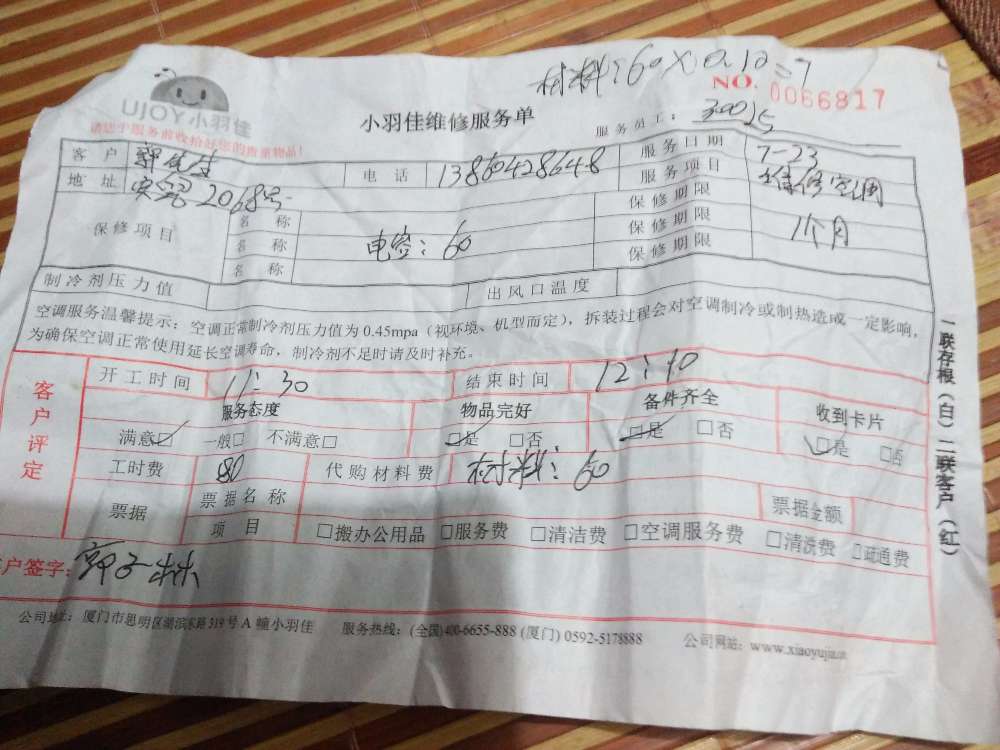 材料:60×0.12=7
UJOY小羽佳
小羽佳维修服务单
NO. 0066817
请您于服务前收拾好您的贵重物品!
服务员工: 30025
客户 郭先生 电话 13860428648 服务日期 7-23
地址 2068号 服务项目 维修空调
保修项目 名称 保修期限
名称 电容:60 保修期限 1个月
名称 保修期限
制冷剂压力值 出风口温度
空调服务温馨提示:空调正常制冷剂压力值为 0.45mpa(视环境、机型而定),拆装过程会对空调制冷或制热造成一定影响,
为确保空调正常使用延长空调寿命,制冷剂不足时请及时补充。
客户评定
开工时间 11:30 结束时间 12:10
服务态度 物品完好 备件齐全 收到卡片
满意☑ 一般□ 不满意□ ☑是 □否 ☑是 □否 ☑是 □否
工时费 80 代购材料费 材料:60
票据 票据名称 票据金额
项目 □搬办公用品 □服务费 □清洁费 □空调服务费 □清洗费 □疏通费
户签字: 郭子林
公司地址:厦门市思明区湖滨东路 319 号 A 幢小羽佳 服务热线:(全国)400-6655-888 (厦门) 0592-5178888 公司网站:www.xiaoyujia.
一联存根(白)二联客户(红)